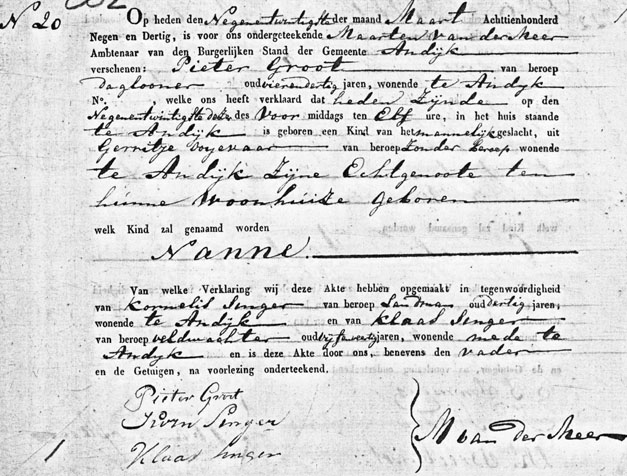 N 20
Op heden den Negenentwintigste der maand Maart Achttienhonderd
Negen en Dertig, is voor ons ondergeteekende Maarten van der Meer
Ambtenaar van den Burgerlijken Stand der Gemeente Andijk
verschenen: Pieter Groot van beroep
daglooner oud vierendertig jaren, wonende te Andijk
No. , welke ons heeft verklaard dat heden Zijnde op den
Negenentwintigste dezer des Voor middags ten Elf ure, in het huis staande
te Andijk is geboren een Kind van het mannelijk geslacht, uit
Gerritje van beroep Zonder beroep wonende
te Andijk Zijne Echtgenoote ten
hunne Woonhuize geboren
welk Kind zal genaamd worden
Nanne.
Van welke Verklaring wij deze Akte hebben opgemaakt in tegenwoordigheid
van Kornelis Singer van beroep Landman oud dertig jaren,
wonende te Andijk en van Klaas Singer
van beroep veldwachter oud jaren, wonende mede te
Andijk en is deze Akte door ons, benevens den vader
en de Getuigen, na voorlezing onderteekend.
Pieter Groot
Korn Singer
Klaas Singer
M van der Meer